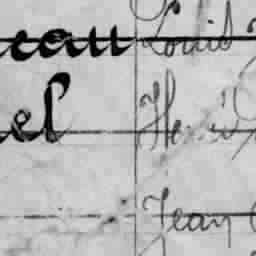 eau Louis
el Henri
Jean